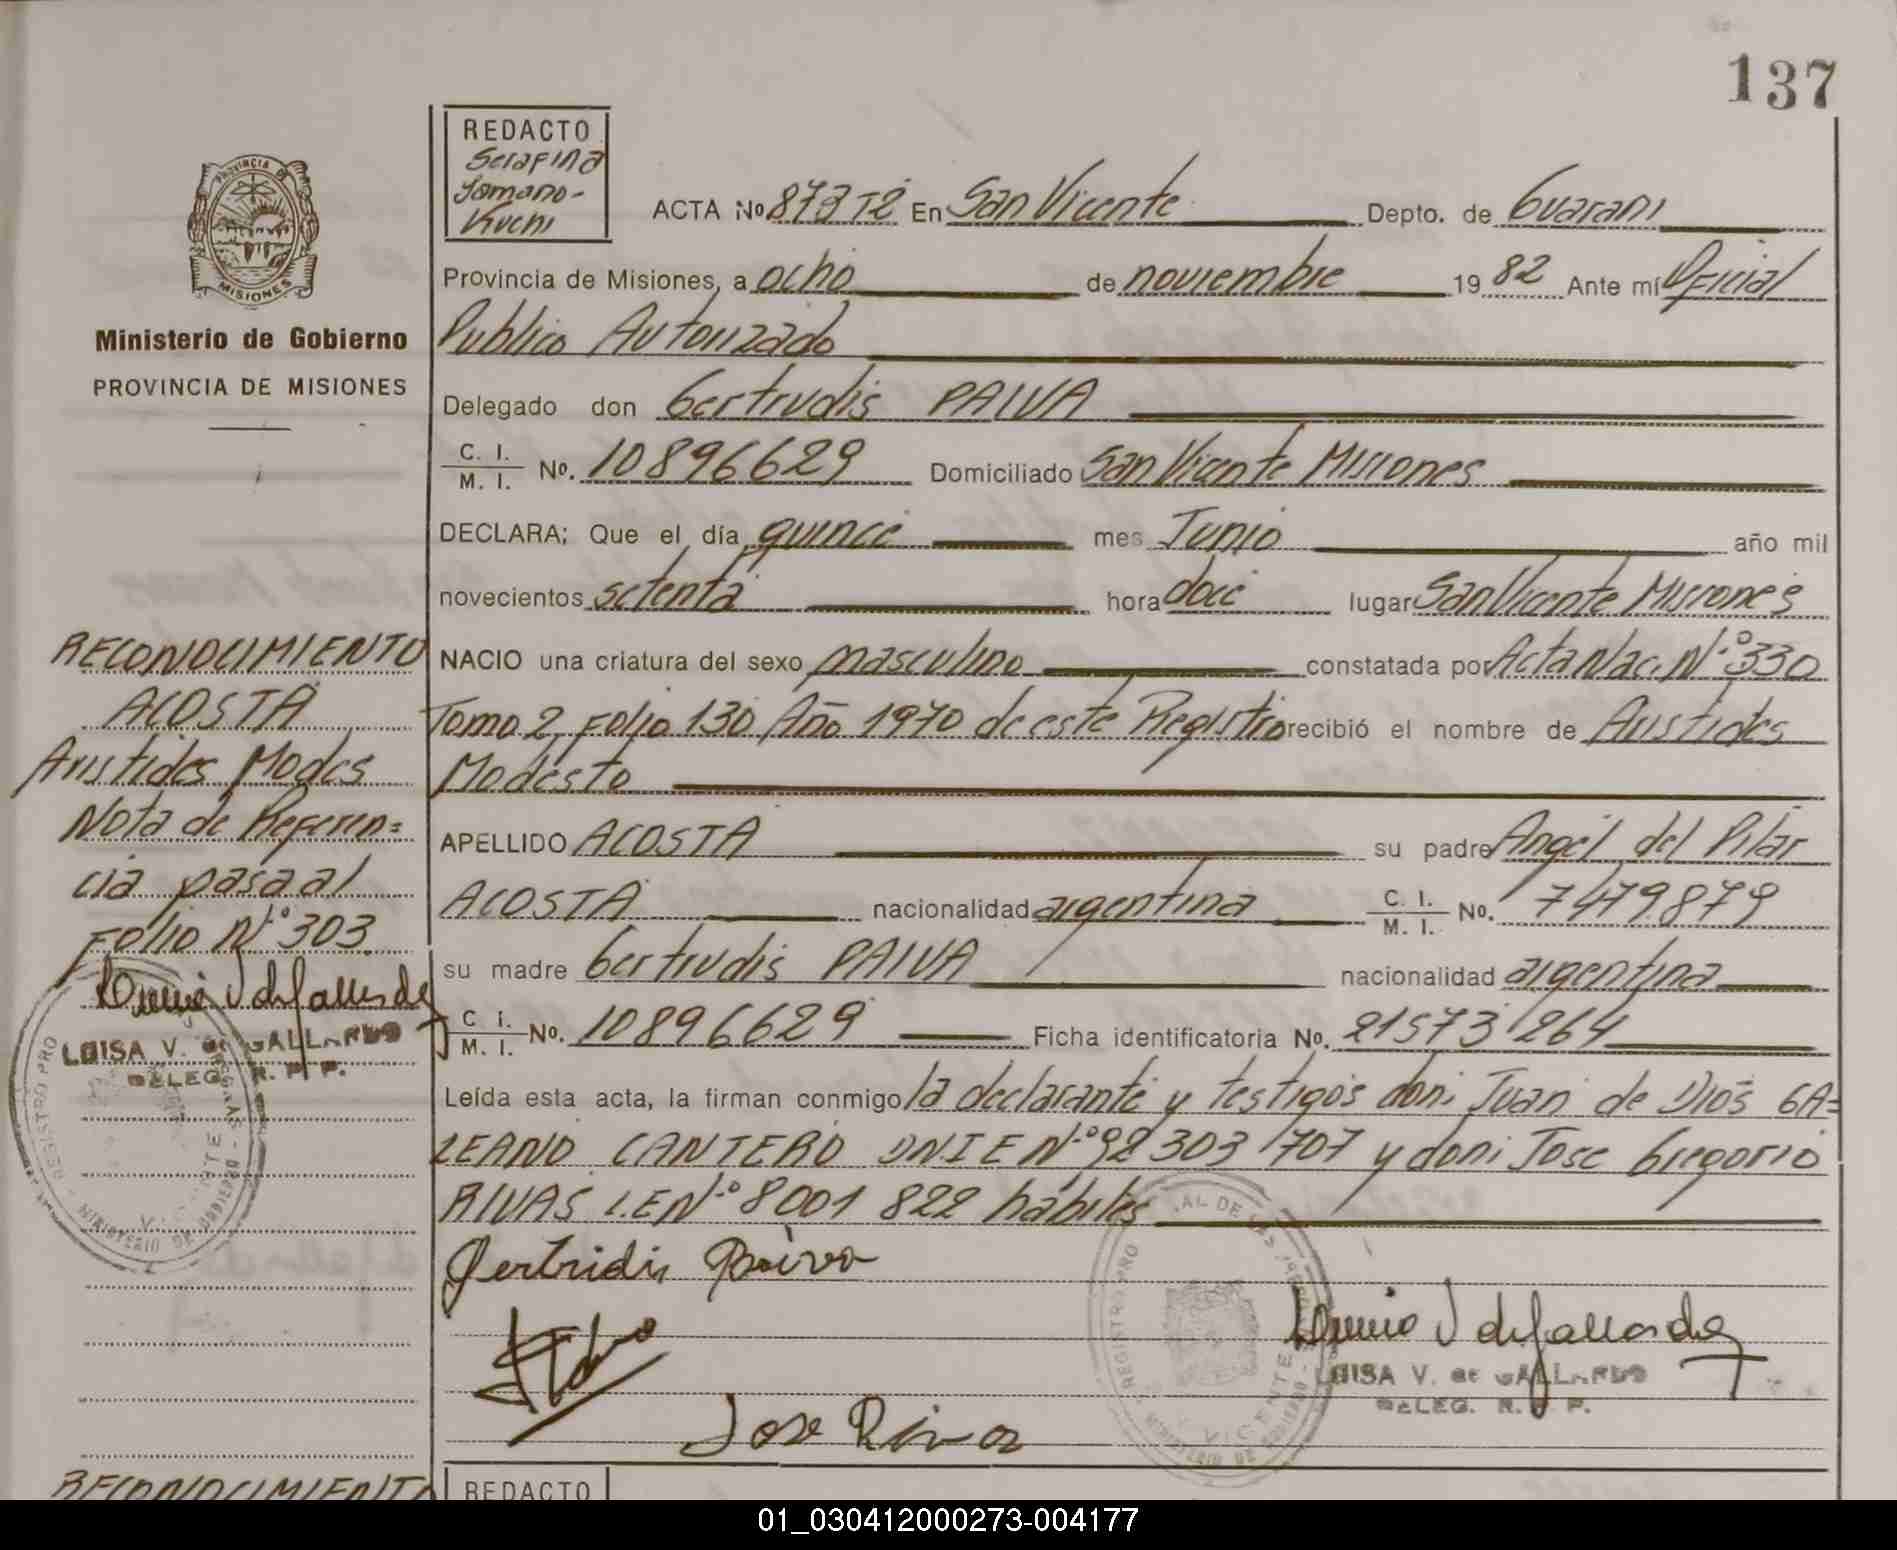 137
REDACTO
Serafina
Somano-
Kuchi
ACTA No 873 T2 En San Vicente Depto. de Guarani
PROVINCIA DE
MISIONES
Provincia de Misiones, a ocho de noviembre 1982 Ante mí Oficial
Ministerio de Gobierno
PROVINCIA DE MISIONES
Publico Autorizado
Delegado don Gertrudis PAIVA
C. I.
M. I. No. 10896629 Domiciliado San Vicente Misiones
DECLARA; Que el día quince mes Junio año mil
novecientos setenta hora doce lugar San Vicente Misiones
NACIO una criatura del sexo masculino constatada por Acta Nac. N.º 330
Tomo 2 Folio 130 Año 1970 de este Registro recibió el nombre de Aristides
Modesto
APELLIDO ACOSTA su padre Angel del Pilar
ACOSTA nacionalidad argentina C. I. M. I. No. 7479.879
su madre Gertrudis PAIVA nacionalidad argentina
C I. M. I. No. 10896629 Ficha identificatoria No. 21573 264
Leída esta acta, la firman conmigo la declarante y testigos don: Juan de Dios GA=
LEANO CANTERO DNIE N.º 92 303 707 y don: Jose Gregorio
RIVAS L.E N.º 8001 822 hábiles
Gertridis Paiva
Jose Riva
LUISA V. DE GALLARDO
DELEG. R. P. P.
RECONOCIMIENTO
ACOSTA
Aristides Modes
Nota de Referen=
cia pasa al
Folio N.º 303
LUISA V. DE GALLARDO
DELEG. R. P. P.
RECONOCIMIENTO
REDACTO
01_030412000273-004177